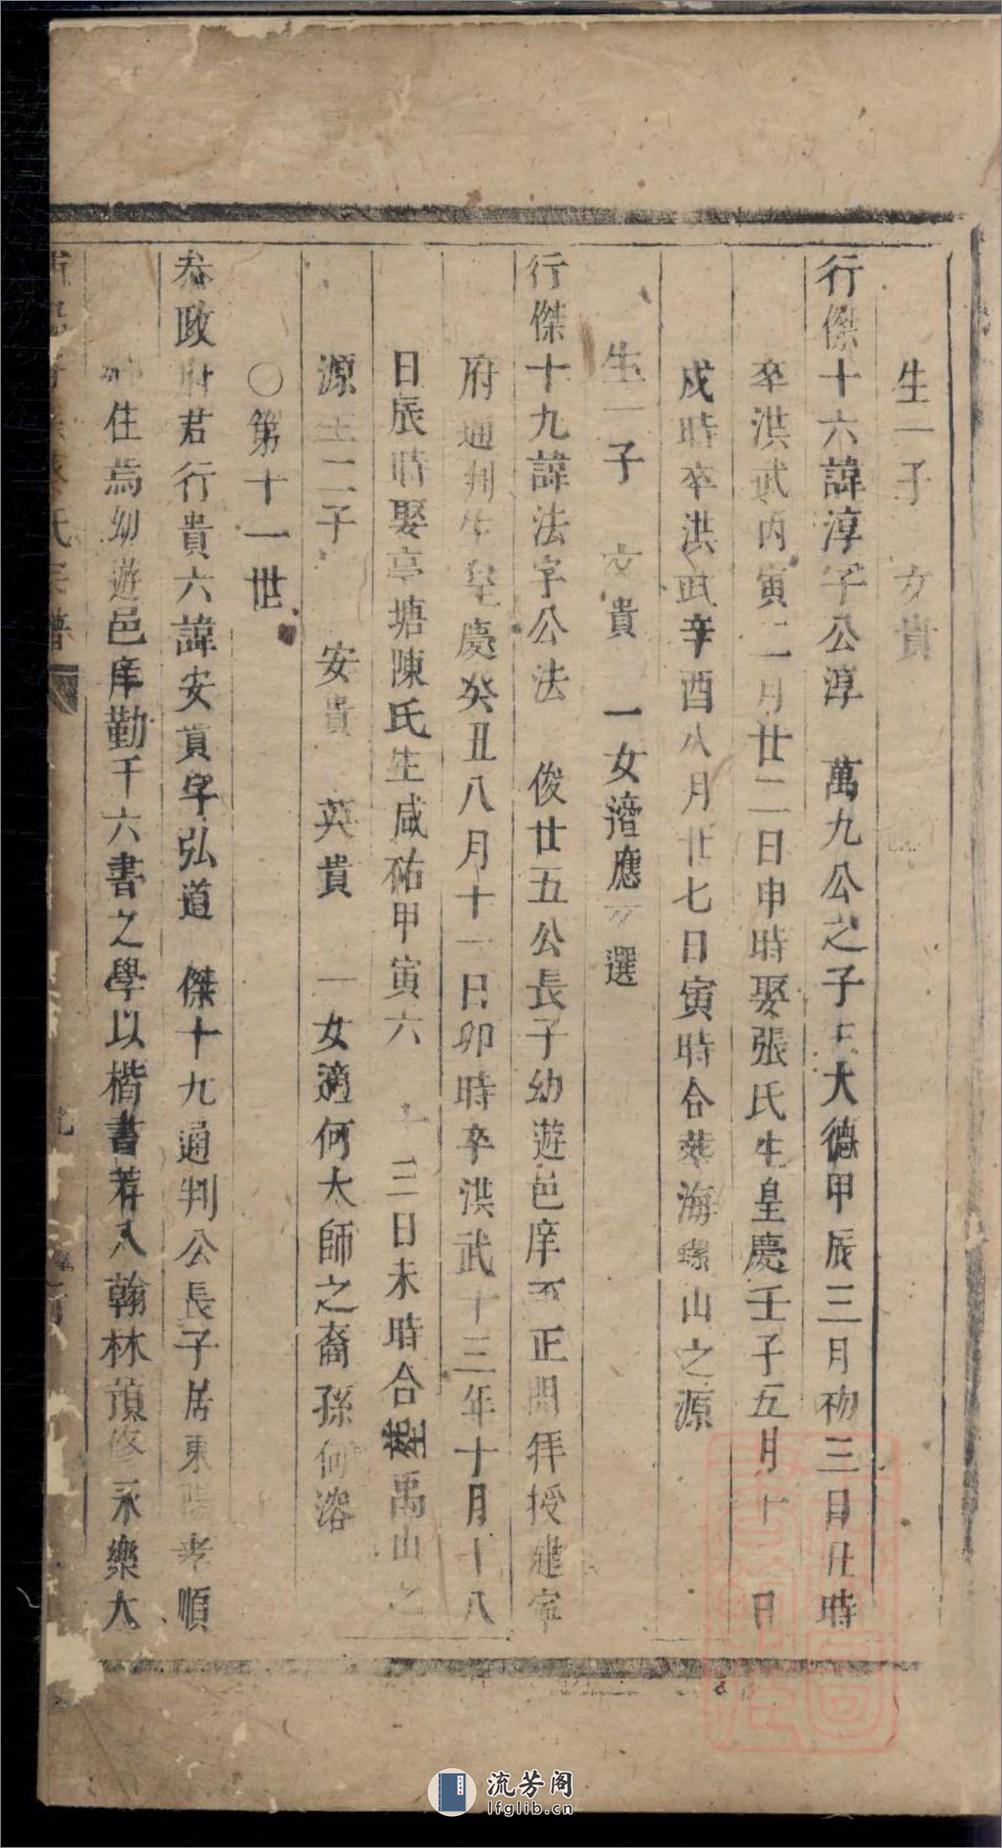 生一子 文貴
行傑十六諱淳字公淳 萬九公之子生大德甲辰三月初三日丑時
卒洪武丙寅二月廿二日申時娶張氏生皇慶壬子五月十 日
戍時卒洪武辛酉八月廿七日寅時合葬海螺山之源
生一子 文貴 一女適應 選
行傑十九諱法字公法 俊廿五公長子幼遊邑庠 正間拜授建寧
府通判生皇慶癸丑八月十一日卯時卒洪武十三年十月十八
日辰時娶亭塘陳氏生咸祐甲寅六 十三日未時合塟禹山之
源生二子 安貴 英貴 一女適何大師之裔孫何溶
○第十一世
叅政府君行貴六諱安貴字弘道 傑十九通判公長子居東陽孝順
住焉幼遊邑庠勤于六書之學以楷書荐入翰林預修永樂大
氏宗譜
流芳阁
lfglib.cn